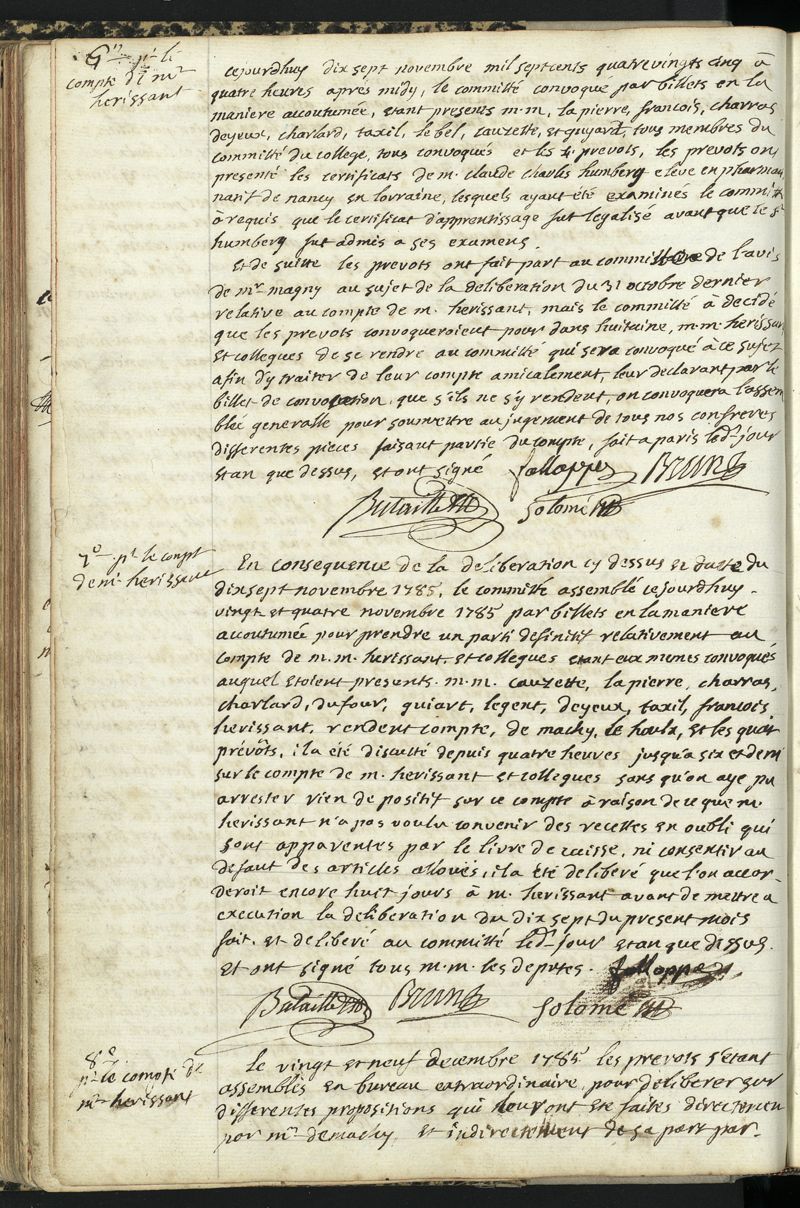 6º pr le
compte de mr
herissant
cejourdhuy dix sept novembre mil septcents quatrevingts cinq à
quatre heures après midy, le committé convoqué par billets en la
maniere accoutumée, etant presents m.m, la pierre, francois, charras
deyeux, charlard, taxil, le bel, cauzette, et guyard, tous membres du
committé du college, tous convoqués et les 4. prevots, les prevots ont
presenté les certificats de m. claude charles humberg eleve en pharmacie
natif de nancy en lorraine, lesquels ayant été examinés le committé
à requis que le certificat d'apprentissage fut legalisé avant que le sr
humberg fut admis a ses examens.
et de suitte les prevots ont fait part au committé de l'avis
de mr magny au sujet de la deliberation du 31 octobre dernier
relative au compte de m. herissant, mais le committé à decidé
que les prevots convoqueroient pour dans huitaine, m.m. herissant
et collegues de se rendre au committé qui sera convoqué à ce sujet
afin d'y traiter de leur compte amicalement, leur declarant par le
billet de convocation que s'ils ne s'y rendent, on convoquera l'assem
blée generalle pour soumettre au jugement de tous nos confreres
differentes pieces faisant partie du compte, fait a paris led. jour
et an que dessus, et ont signé fallopp Brun
Bataille Solomé
7º pr le compt
de mr herissant
En consequence de la deliberation cy dessus en datte du
dix sept novembre 1785, le committé assemblé cejourdhuy
vingt et quatre novembre 1785 par billets en la maniere
accoutumée pour prendre un parti definitif relativement au
compte de m.m. herissant et collegues etant eux memes convoqués
auquel etoient presents m.m. cauzette, la pierre, charras,
charlard, dufour, guiart, legent, deyeux, taxil, francois,
herissant, rendent compte, de machy, le houx, et les quatr
prévôts, il a été discuté depuis quatre heures jusqu'a six et demi
sur le compte de m. herissant et collegues sans qu'on aye pu
arrester rien de positif sur ce compte à raison de ce que m.
herissant n'a pas voulu convenir des recettes en oubli qui
sont apparentes par le livre de caisse, ni consentir au
defaut des articles alloués, il a été deliberé que l'on accor
deroit encore huit jours à m. herissant avant de mettre a
execution la deliberation du dix sept du present mois
fait et deliberé au committé led. jour et an que dessus.
et ont signé tous m.m. les deputés. fallopp
Bataille Brun Solomé
8º
pr le compte de
mr herissant
le vingt et neuf decembre 1785 les prevots s'etant
assemblés en bureau extraordinaire pour deliberer sur
differentes propositions qui leur ont ete faites directemen
par mr demachy et indirectement de sa part par